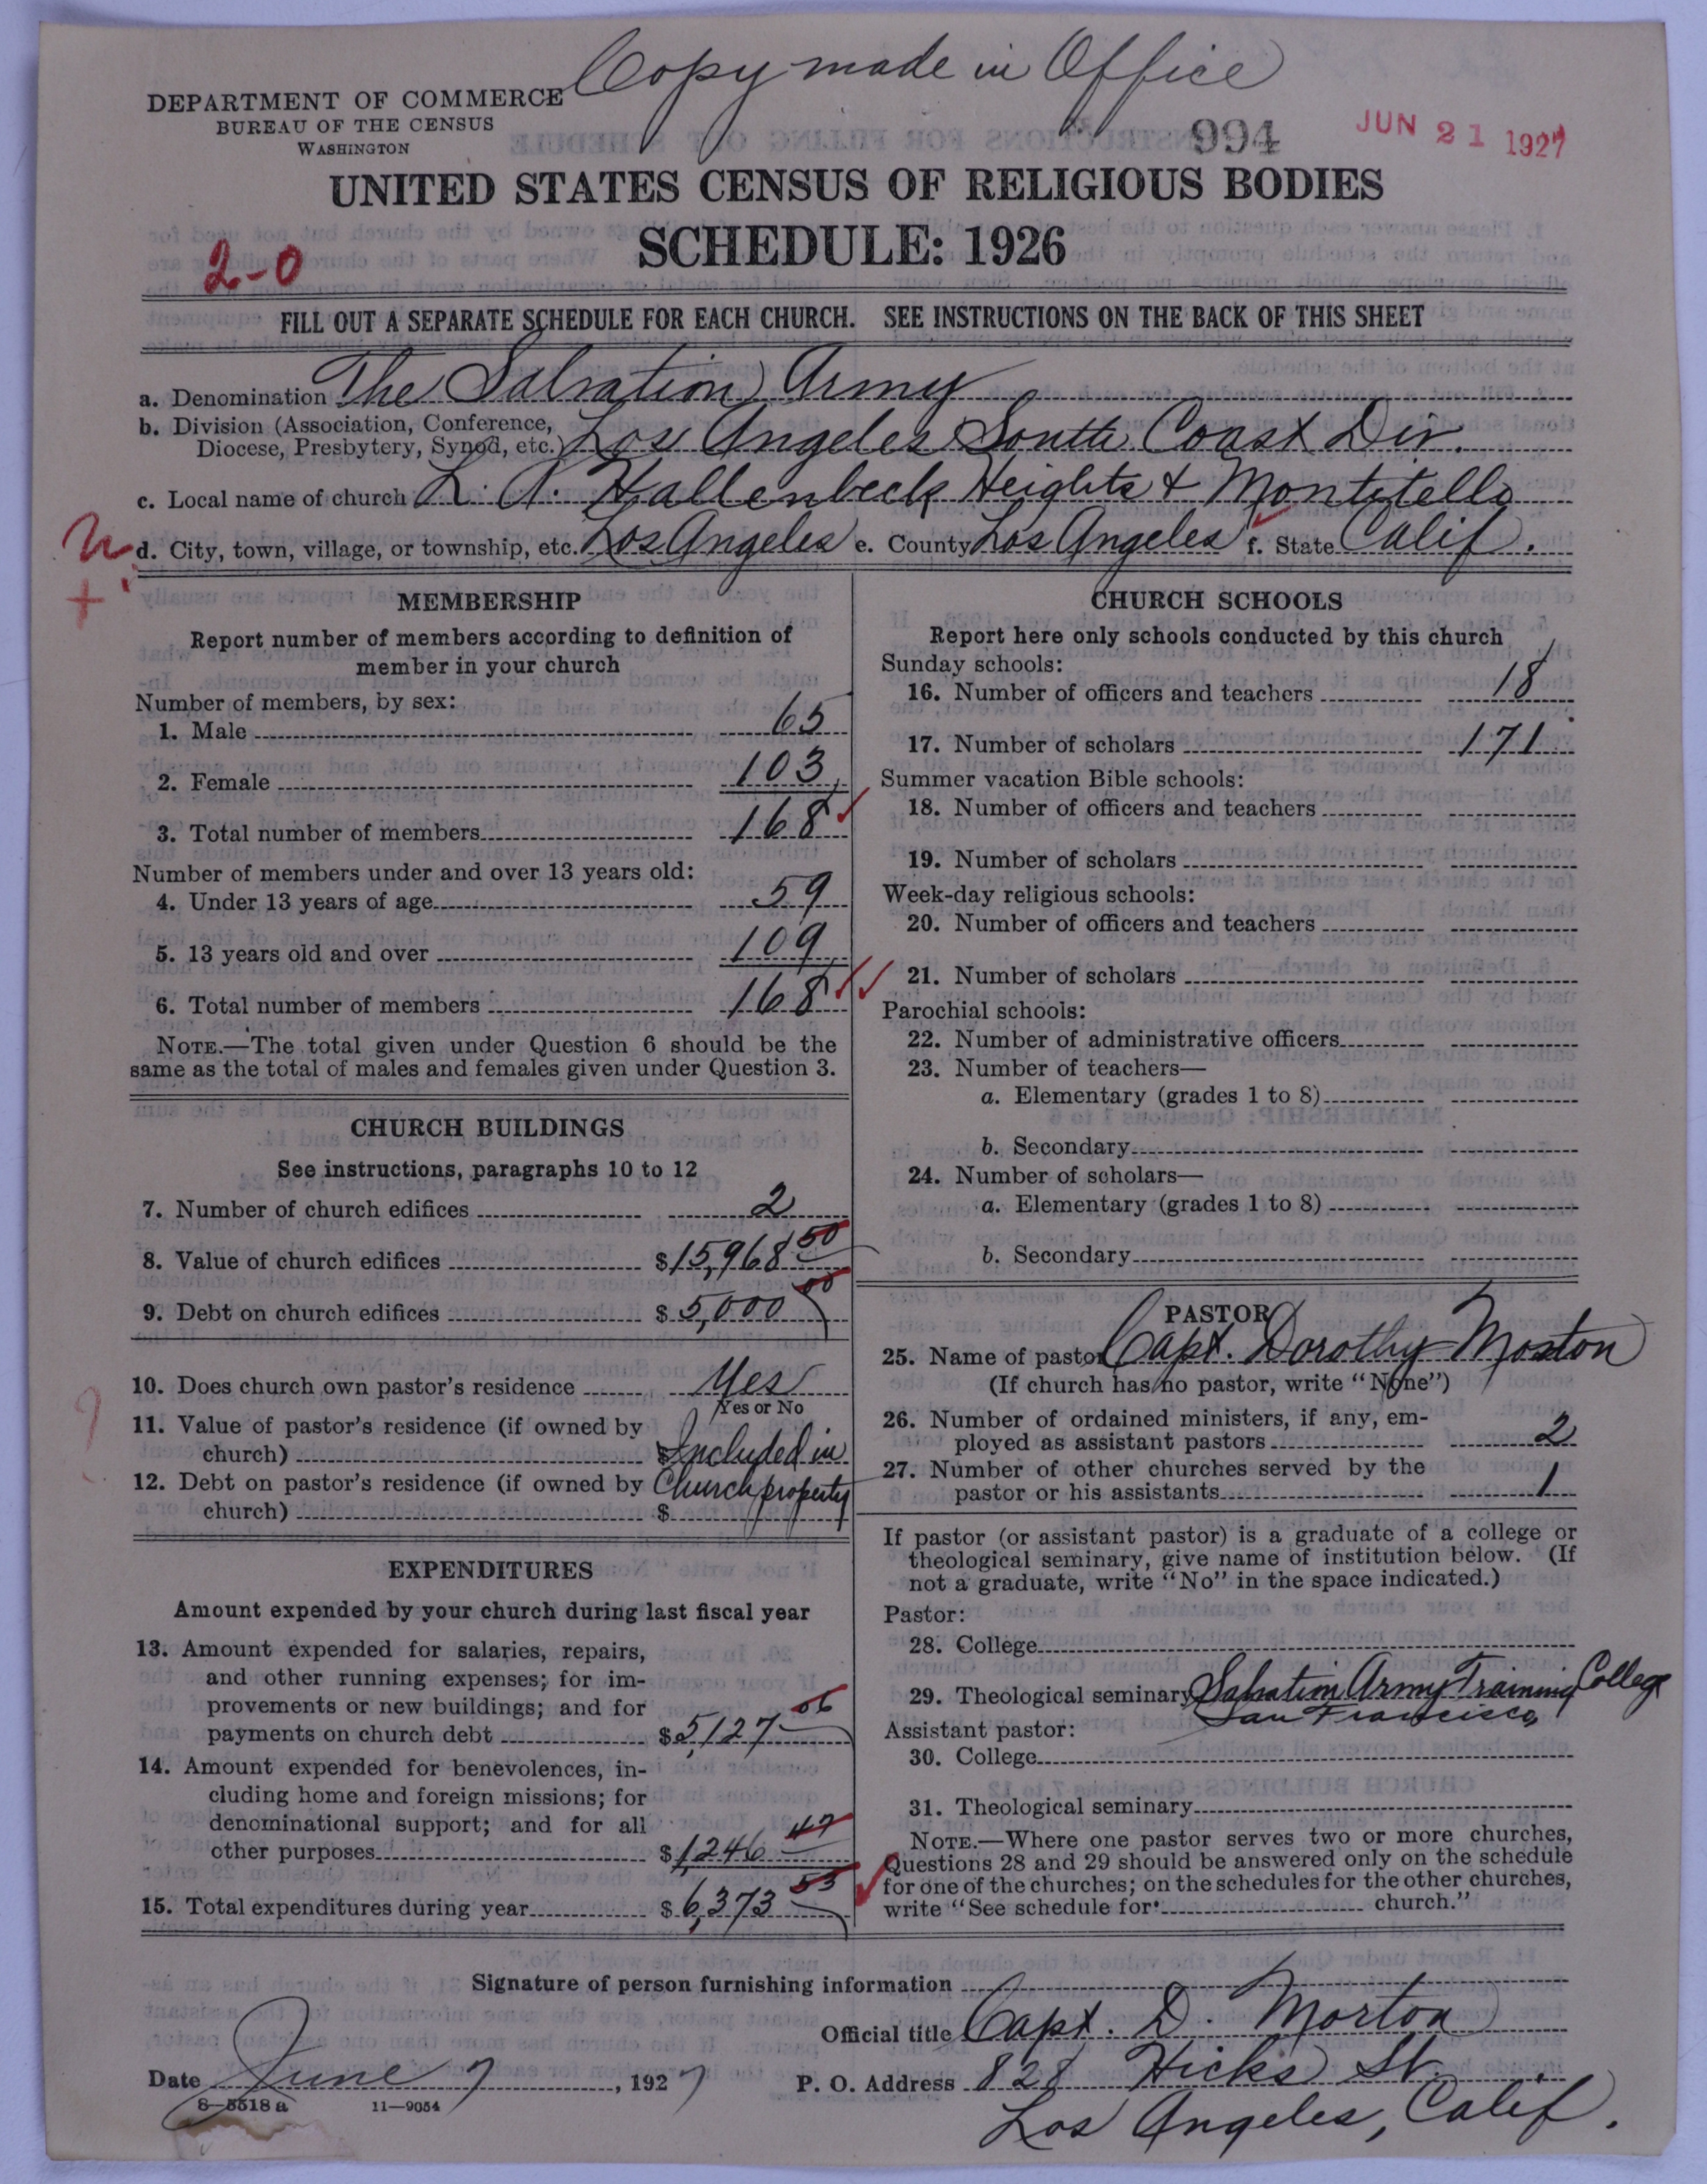 Copy made in Office
DEPARTMENT OF COMMERCE
BUREAU OF THE CENSUS
WASHINGTON
994
JUN 21 1927
UNITED STATES CENSUS OF RELIGIOUS BODIES
SCHEDULE: 1926
2-0
FILL OUT A SEPARATE SCHEDULE FOR EACH CHURCH. SEE INSTRUCTIONS ON THE BACK OF THIS SHEET
a. Denomination The Salvation Army
b. Division (Association, Conference,
Diocese, Presbytery, Synod, etc.) Los Angeles South Coast Div.
c. Local name of church L. A. Hallenbeck Heights & Montitello
d. City, town, village, or township, etc. Los Angeles e. County Los Angeles f. State Calif.
MEMBERSHIP
Report number of members according to definition of
member in your church
Number of members, by sex:
1. Male 65
2. Female 103
3. Total number of members 168
Number of members under and over 13 years old:
4. Under 13 years of age 59
5. 13 years old and over 109
6. Total number of members 168
NOTE.—The total given under Question 6 should be the
same as the total of males and females given under Question 3.
CHURCH BUILDINGS
See instructions, paragraphs 10 to 12
7. Number of church edifices 2
8. Value of church edifices $15,968 50
9. Debt on church edifices $5,000 00
10. Does church own pastor's residence Yes
Yes or No
11. Value of pastor's residence (if owned by
church) $ Included in
12. Debt on pastor's residence (if owned by Church property
church) $
EXPENDITURES
Amount expended by your church during last fiscal year
13. Amount expended for salaries, repairs,
and other running expenses; for im-
provements or new buildings; and for
payments on church debt $5,127 06
14. Amount expended for benevolences, in-
cluding home and foreign missions; for
denominational support; and for all
other purposes $1,246 47
15. Total expenditures during year $6,373 53
CHURCH SCHOOLS
Report here only schools conducted by this church
Sunday schools:
16. Number of officers and teachers 18
17. Number of scholars 171
Summer vacation Bible schools:
18. Number of officers and teachers
19. Number of scholars
Week-day religious schools:
20. Number of officers and teachers
21. Number of scholars
Parochial schools:
22. Number of administrative officers
23. Number of teachers—
a. Elementary (grades 1 to 8)
b. Secondary
24. Number of scholars—
a. Elementary (grades 1 to 8)
b. Secondary
PASTOR
25. Name of pastor Capt. Dorothy Moston
(If church has no pastor, write "None")
26. Number of ordained ministers, if any, em-
ployed as assistant pastors 2
27. Number of other churches served by the
pastor or his assistants 1
If pastor (or assistant pastor) is a graduate of a college or
theological seminary, give name of institution below. (If
not a graduate, write "No" in the space indicated.)
Pastor:
28. College
29. Theological seminary Salvation Army Training College
San Francisco
Assistant pastor:
30. College
31. Theological seminary
NOTE.—Where one pastor serves two or more churches,
Questions 28 and 29 should be answered only on the schedule
for one of the churches; on the schedules for the other churches,
write "See schedule for church."
Signature of person furnishing information
Official title Capt. D. Morton
Date June 7, 1927
P. O. Address 828 Hicks St.
Los Angeles, Calif.
8-5518 a 11—9054